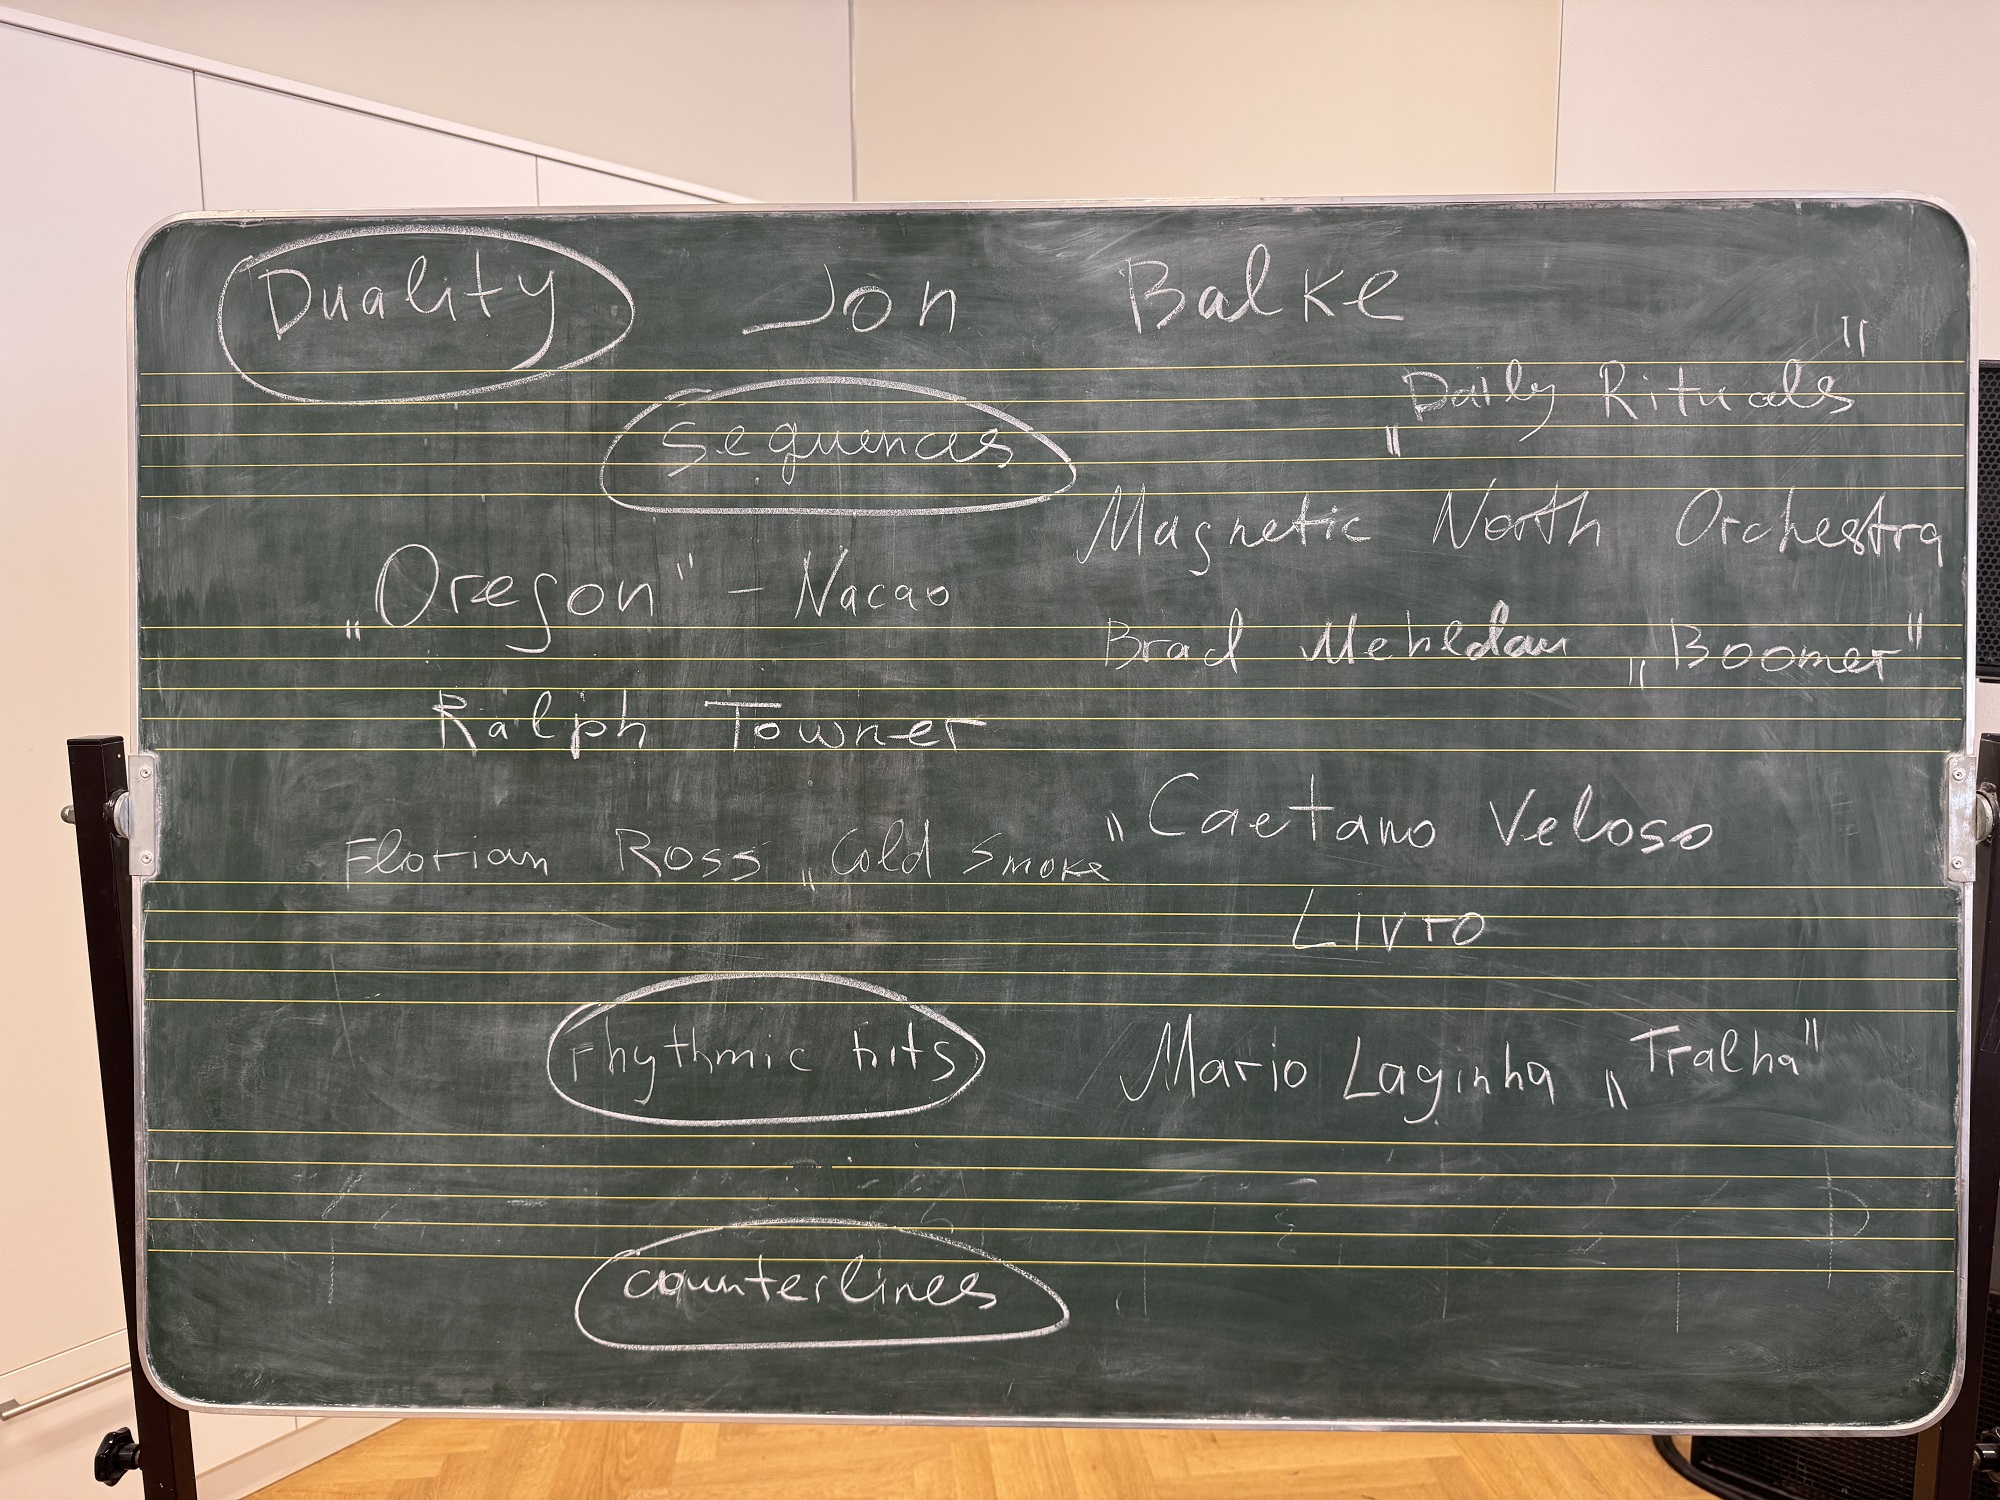 Duality Jon Balke
„Daily Rituals"
sequences
Magnetic North Orchestra
„Oregon" – Nacao
Brad Mehldau „Boomer"
Ralph Towner
"Caetano Veloso
Florian Ross „Cold Smoke"
Livro
rhythmic hits
Mario Laginha „Tralha"
counterlines